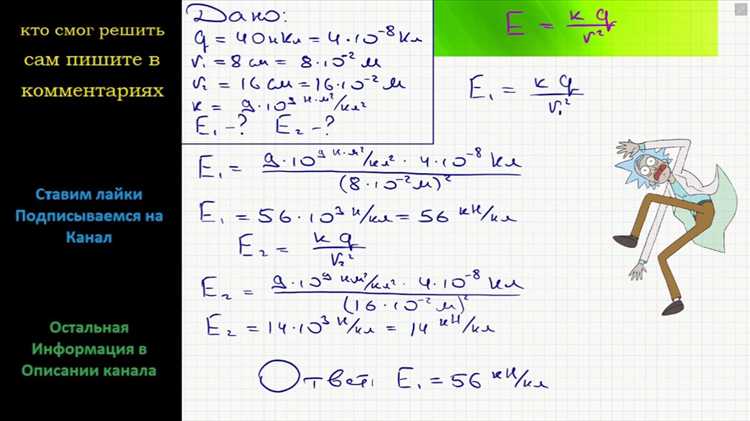 кто смог решить
сам пишите в
комментариях
Ставим лайки
Подписываемся на
Канал
Остальная
Информация в
Описании канала
Дано:
q = 40 нКл = 4·10⁻⁸ Кл
r₁ = 8 см = 8·10⁻² м
r₂ = 16 см = 16·10⁻² м
к = 9·10⁹ Н·м²/Кл²
E₁ - ? E₂ - ?
E = к q / r²
E₁ = к q / r₁²
E₁ = 9·10⁹ Н·м²/Кл² · 4·10⁻⁸ Кл / (8·10⁻² м)²
E₁ = 56·10³ Н/Кл = 56 кН/Кл
E₂ = к q / r₂²
E₂ = 9·10⁹ Н·м²/Кл² · 4·10⁻⁸ Кл / (16·10⁻² м)²
E₂ = 14·10³ Н/Кл = 14 кН/Кл
Ответ: E₁ = 56 кН/Кл